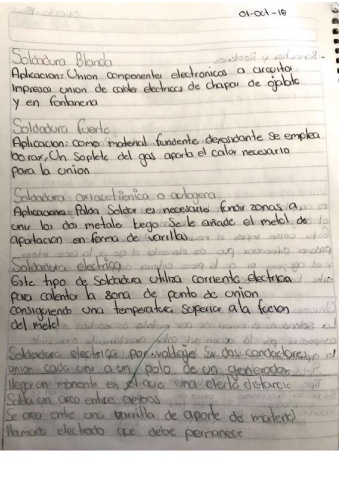 01-oct-18
Soldadura Blanda
Aplicacion: Union componentes electronicos a circuitos
Impresos union de cables electricos de chapas de ojalata
y en fontaneria
Soldadura fuerte
Aplicacion: como material fundente desoxidante se emplea
borax, Un soplete del gas aporta el calor necesario
para la union
Soldadura oxiacetilenica o autogena
Aplicacion: Poder Soldar es necesario fundir zonas a
unir los dos metales luego Se le añade el metal de
aportacion en forma de varillas
Soldadura electrica
Este tipo de Soldadura utiliza corriente electrica
Para calentar la zona de punto de union
Consiguiendo una temperatura superior a la fucion
del metal
Soldadura electrica por voltaje Su dos conductores
union cada uno a un polo de un generador
llegar un momento en una cierta distancia
Salta un arco entre
Se crea entre una varilla de aporte de material
llamante electrodo que debe permanese